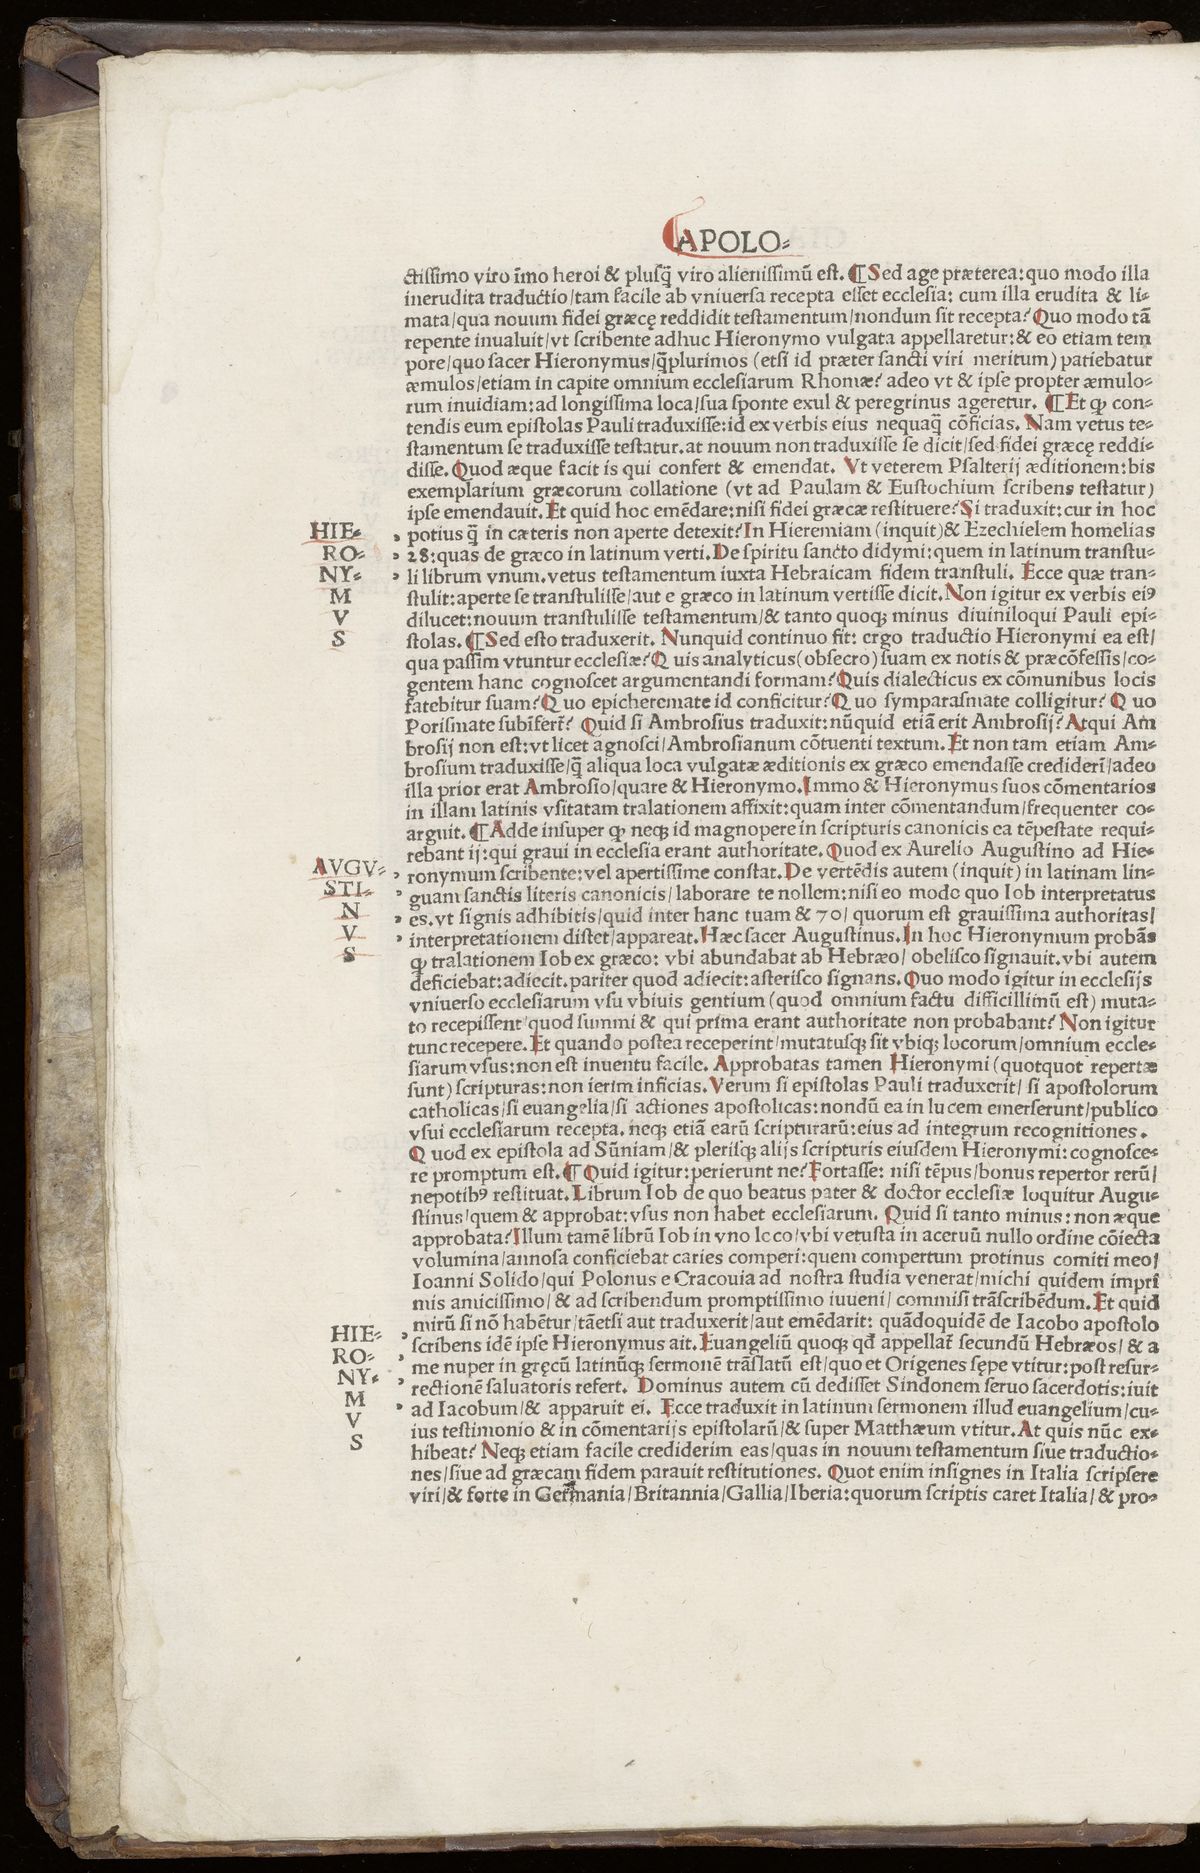 APOLO-
ctissimo viro īmo heroi & plusq̄ viro alienissimū est. ¶ Sed age præterea: quo modo illa
inerudita traductio/tam facile ab vniuersa recepta esset ecclesia: cum illa erudita & li-
mata/qua nouum fidei græcę reddidit testamentum/nondum sit recepta? Quo modo tā
repente inualuit/vt scribente adhuc Hieronymo vulgata appellaretur: & eo etiam tem
pore/quo sacer Hieronymus/q̄plurimos (etsi id præter sancti viri meritum) patiebatur
æmulos/etiam in capite omnium ecclesiarum Rhomæ? adeo vt & ipse propter æmulo-
rum inuidiam: ad longissima loca/sua sponte exul & peregrinus ageretur. ¶ Et ꝙ con-
tendis eum epistolas Pauli traduxisse: id ex verbis eius nequaq̄ cōficias. Nam vetus te-
stamentum se traduxisse testatur. at nouum non traduxisse se dicit/sed fidei græcę reddi-
disse. Quod æque facit is qui confert & emendat. Vt veterem Psalterij æditionem: bis
exemplarium græcorum collatione (vt ad Paulam & Eustochium scribens testatur)
ipse emendauit. Et quid hoc emēdare: nisi fidei græcæ restituere? Si traduxit: cur in hoc
potius q̄ in cæteris non aperte detexit? In Hieremiam (inquit) & Ezechielem homelias
28: quas de græco in latinum verti. De spiritu sancto didymi: quem in latinum transtu-
li librum vnum. vetus testamentum iuxta Hebraicam fidem transtuli. Ecce quæ tran-
stulit: aperte se transtulisse/aut e græco in latinum vertisse dicit. Non igitur ex verbis eiꝰ
dilucet: nouum transtulisse testamentum/& tanto quoqꝫ minus diuiniloqui Pauli epi-
stolas. ¶ Sed esto traduxerit. Nunquid continuo fit: ergo traductio Hieronymi ea est/
qua passim vtuntur ecclesiæ? Quis analyticus (obsecro) suam ex notis & præcōfessis/co-
gentem hanc cognoscet argumentandi formam? Quis dialecticus ex cōmunibus locis
fatebitur suam? Quo epicheremate id conficitur? Quo symparasmate colligitur? Quo
Porismate subīfert̄? Quid si Ambrosius traduxit: nūquid etiā erit Ambrosij? Atqui Am
brosij non est: vt licet agnosci/Ambrosianum cōtuenti textum. Et non tam etiam Am-
brosium traduxisse/q̄ aliqua loca vulgatæ æditionis ex græco emendasse credideri̅/adeo
illa prior erat Ambrosio/quare & Hieronymo. Immo & Hieronymus suos cōmentarios
in illam latinis vsitatam tralationem affixit: quam inter cōmentandum/frequenter co-
arguit. ¶ Adde insuper ꝙ neqꝫ id magnopere in scripturis canonicis ea tēpestate requi-
rebant ij: qui graui in ecclesia erant authoritate. Quod ex Aurelio Augustino ad Hie-
ronymum scribente: vel apertissime constat. De vertēdis autem (inquit) in latinam lin-
guam sanctis literis canonicis/laborare te nollem: nisi eo modo quo Iob interpretatus
es. vt signis adhibitis/quid inter hanc tuam & 70/ quorum est grauissima authoritas/
interpretationem distet/appareat. Hæc sacer Augustinus. In hoc Hieronymum probās
ꝙ tralationem Iob ex græco: vbi abundabat ab Hebræo/obelisco signauit. vbi autem
deficiebat: adiecit. pariter quod adiecit: asterisco signans. Quo modo igitur in ecclesijs
vniuerso ecclesiarum vsu vbiuis gentium (quod omnium factu difficillimū est) muta-
to recepissent/quod summi & qui prima erant authoritate non probabant? Non igitur
tunc recepere. Et quando postea receperint/mutatusqꝫ sit vbiqꝫ locorum/omnium eccle-
siarum vsus: non est inuentu facile. Approbatas tamen Hieronymi (quotquot repertæ
sunt) scripturas: non ierim inficias. Verum si epistolas Pauli traduxerit/ si apostolorum
catholicas/si euangelia/si actiones apostolicas: nondū ea in lucem emerserunt/publico
vsui ecclesiarum recepta. neqꝫ etiā earū scripturarū: eius ad integrum recognitiones.
Quod ex epistola ad Sūniam/& plerisqꝫ alijs scripturis eiusdem Hieronymi: cognosce-
re promptum est. ¶ Quid igitur: perierunt ne? Fortasse: nisi tēpus/bonus repertor rerū/
nepotibꝰ restituat. Librum Iob de quo beatus pater & doctor ecclesiæ loquitur Augu-
stinus/quem & approbat: vsus non habet ecclesiarum. Quid si tanto minus: non æque
approbata? Illum tamē librū Iob in vno loco/vbi vetusta in aceruū nullo ordine cōiecta
volumina/annosa conficiebat caries comperi: quem compertum protinus comiti meo/
Ioanni Solido/qui Polonus e Cracouia ad nostra studia venerat/michi quidem impri
mis amicissimo/& ad scribendum promptissimo iuueni/commisi trāscribēdum. Et quid
mirū si nō habētur/tāetsi aut traduxerit/aut emēdarit: quādoquidē de Iacobo apostolo
scribens idē ipse Hieronymus ait. Euangeliū quoqꝫ qd̄ appellat̄ secundū Hebræos/& a
me nuper in gręcū latinūqꝫ sermonē trāslatū est/quo et Origenes sępe vtitur: post resur-
rectionē saluatoris refert. Dominus autem cū dedisset Sindonem seruo sacerdotis: iuit
ad Iacobum/& apparuit ei. Ecce traduxit in latinum sermonem illud euangelium/cu-
ius testimonio & in cōmentarijs epistolarū/& super Matthæum vtitur. At quis nūc ex-
hibeat? Neqꝫ etiam facile crediderim eas/quas in nouum testamentum siue traductio-
nes/siue ad græcam fidem parauit restitutiones. Quot enim insignes in Italia scripsere
viri/& forte in Germania/Britannia/Gallia/Iberia: quorum scriptis caret Italia/& pro-
HIE-
RO-
NY-
M
V
S
AVGV-
STI-
N
V
S
HIE-
RO-
NY-
M
V
S